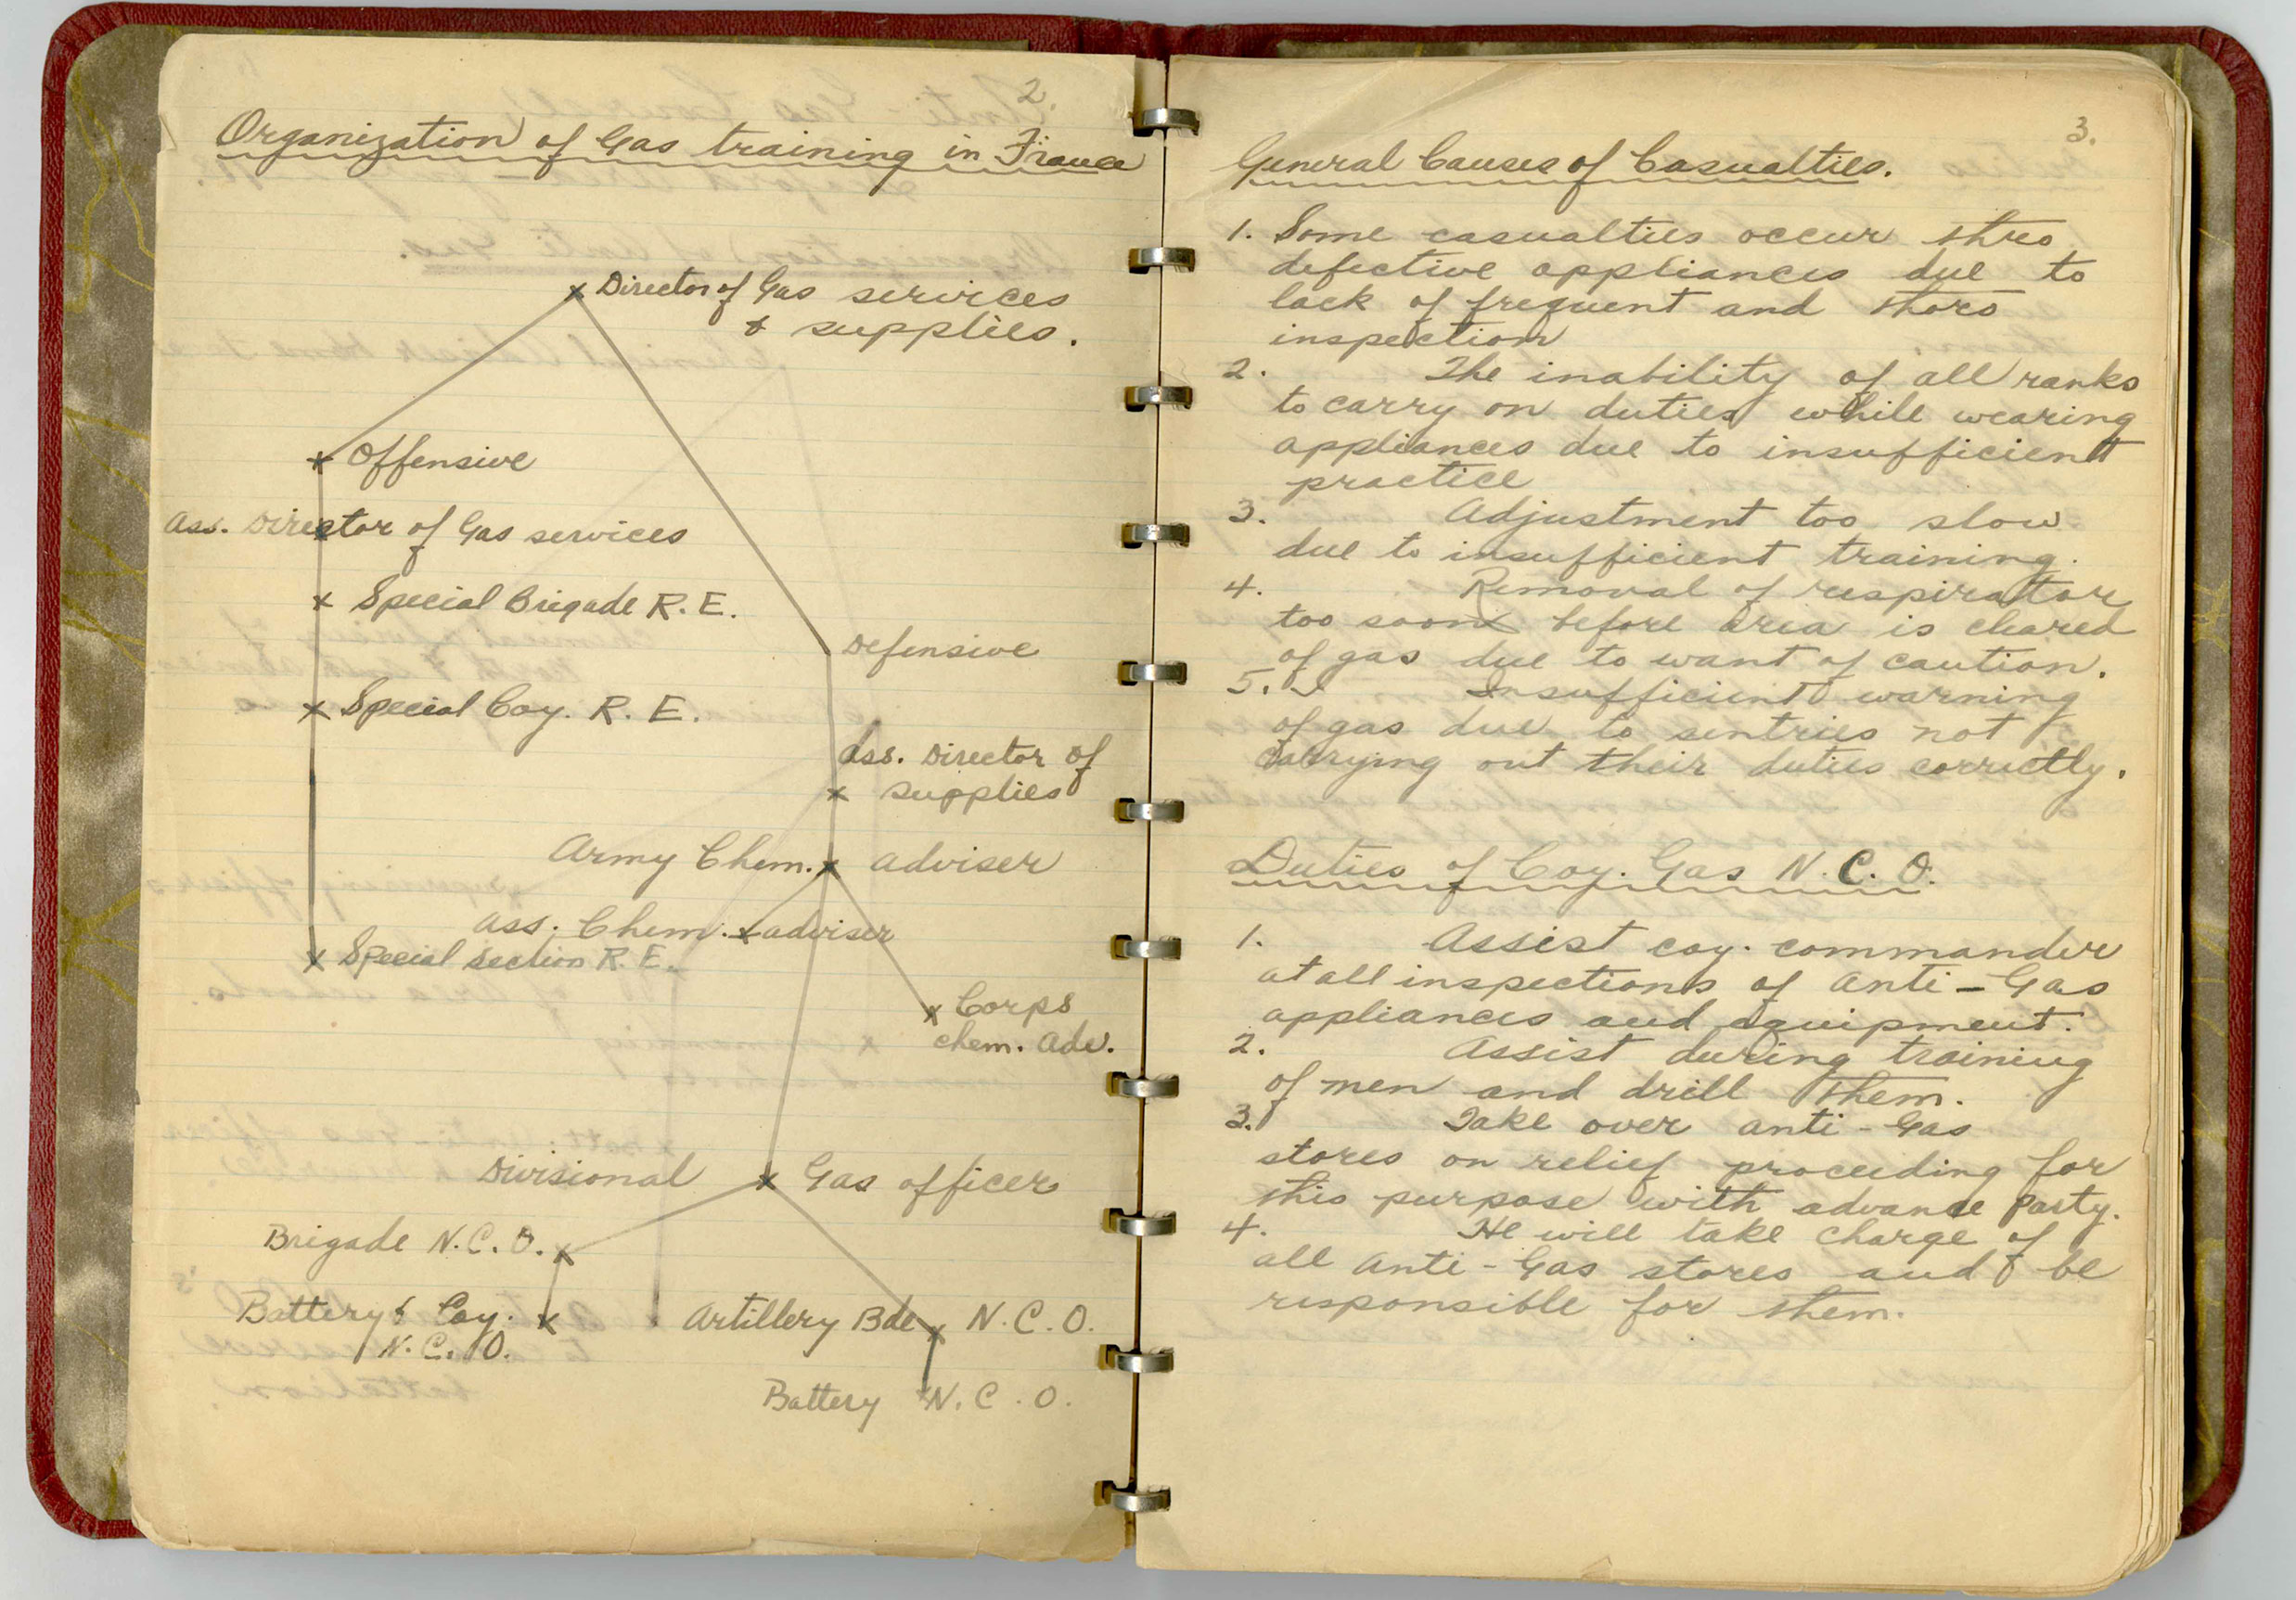 2.
Organization of Gas training in France
Director of Gas services
& supplies.
Offensive
Ass. Director of Gas services
Special Brigade R. E.
Defensive
Special Coy. R. E.
Ass. Director of
supplies
Army Chem. adviser
Ass. Chem. adviser
Special section R. E.
Corps
chem. Adv.
Divisional Gas officer
Brigade N.C.O.
Battery & Coy.
N. C. O.
Artillery Bde N. C. O.
Battery N. C. O.
3.
General Causes of Casualties.
1. Some casualties occur thro
defective appliances due to
lack of frequent and thoro
inspection
2. The inability of all ranks
to carry on duties while wearing
appliances due to insufficient
practice
3. Adjustment too slow
due to insufficient training.
4. Removal of respirator
too soon before area is cleared
of gas due to want of caution.
5. Insufficient warning
of gas due to sentries not
carrying out their duties correctly.
Duties of Coy. Gas N. C. O.
1. Assist coy. commander
at all inspections of Anti-Gas
appliances and equipment.
2. Assist during training
of men and drill them.
3. Take over anti-Gas
stores on relief proceeding for
this purpose with advance party.
4. He will take charge of
all Anti-Gas stores and be
responsible for them.